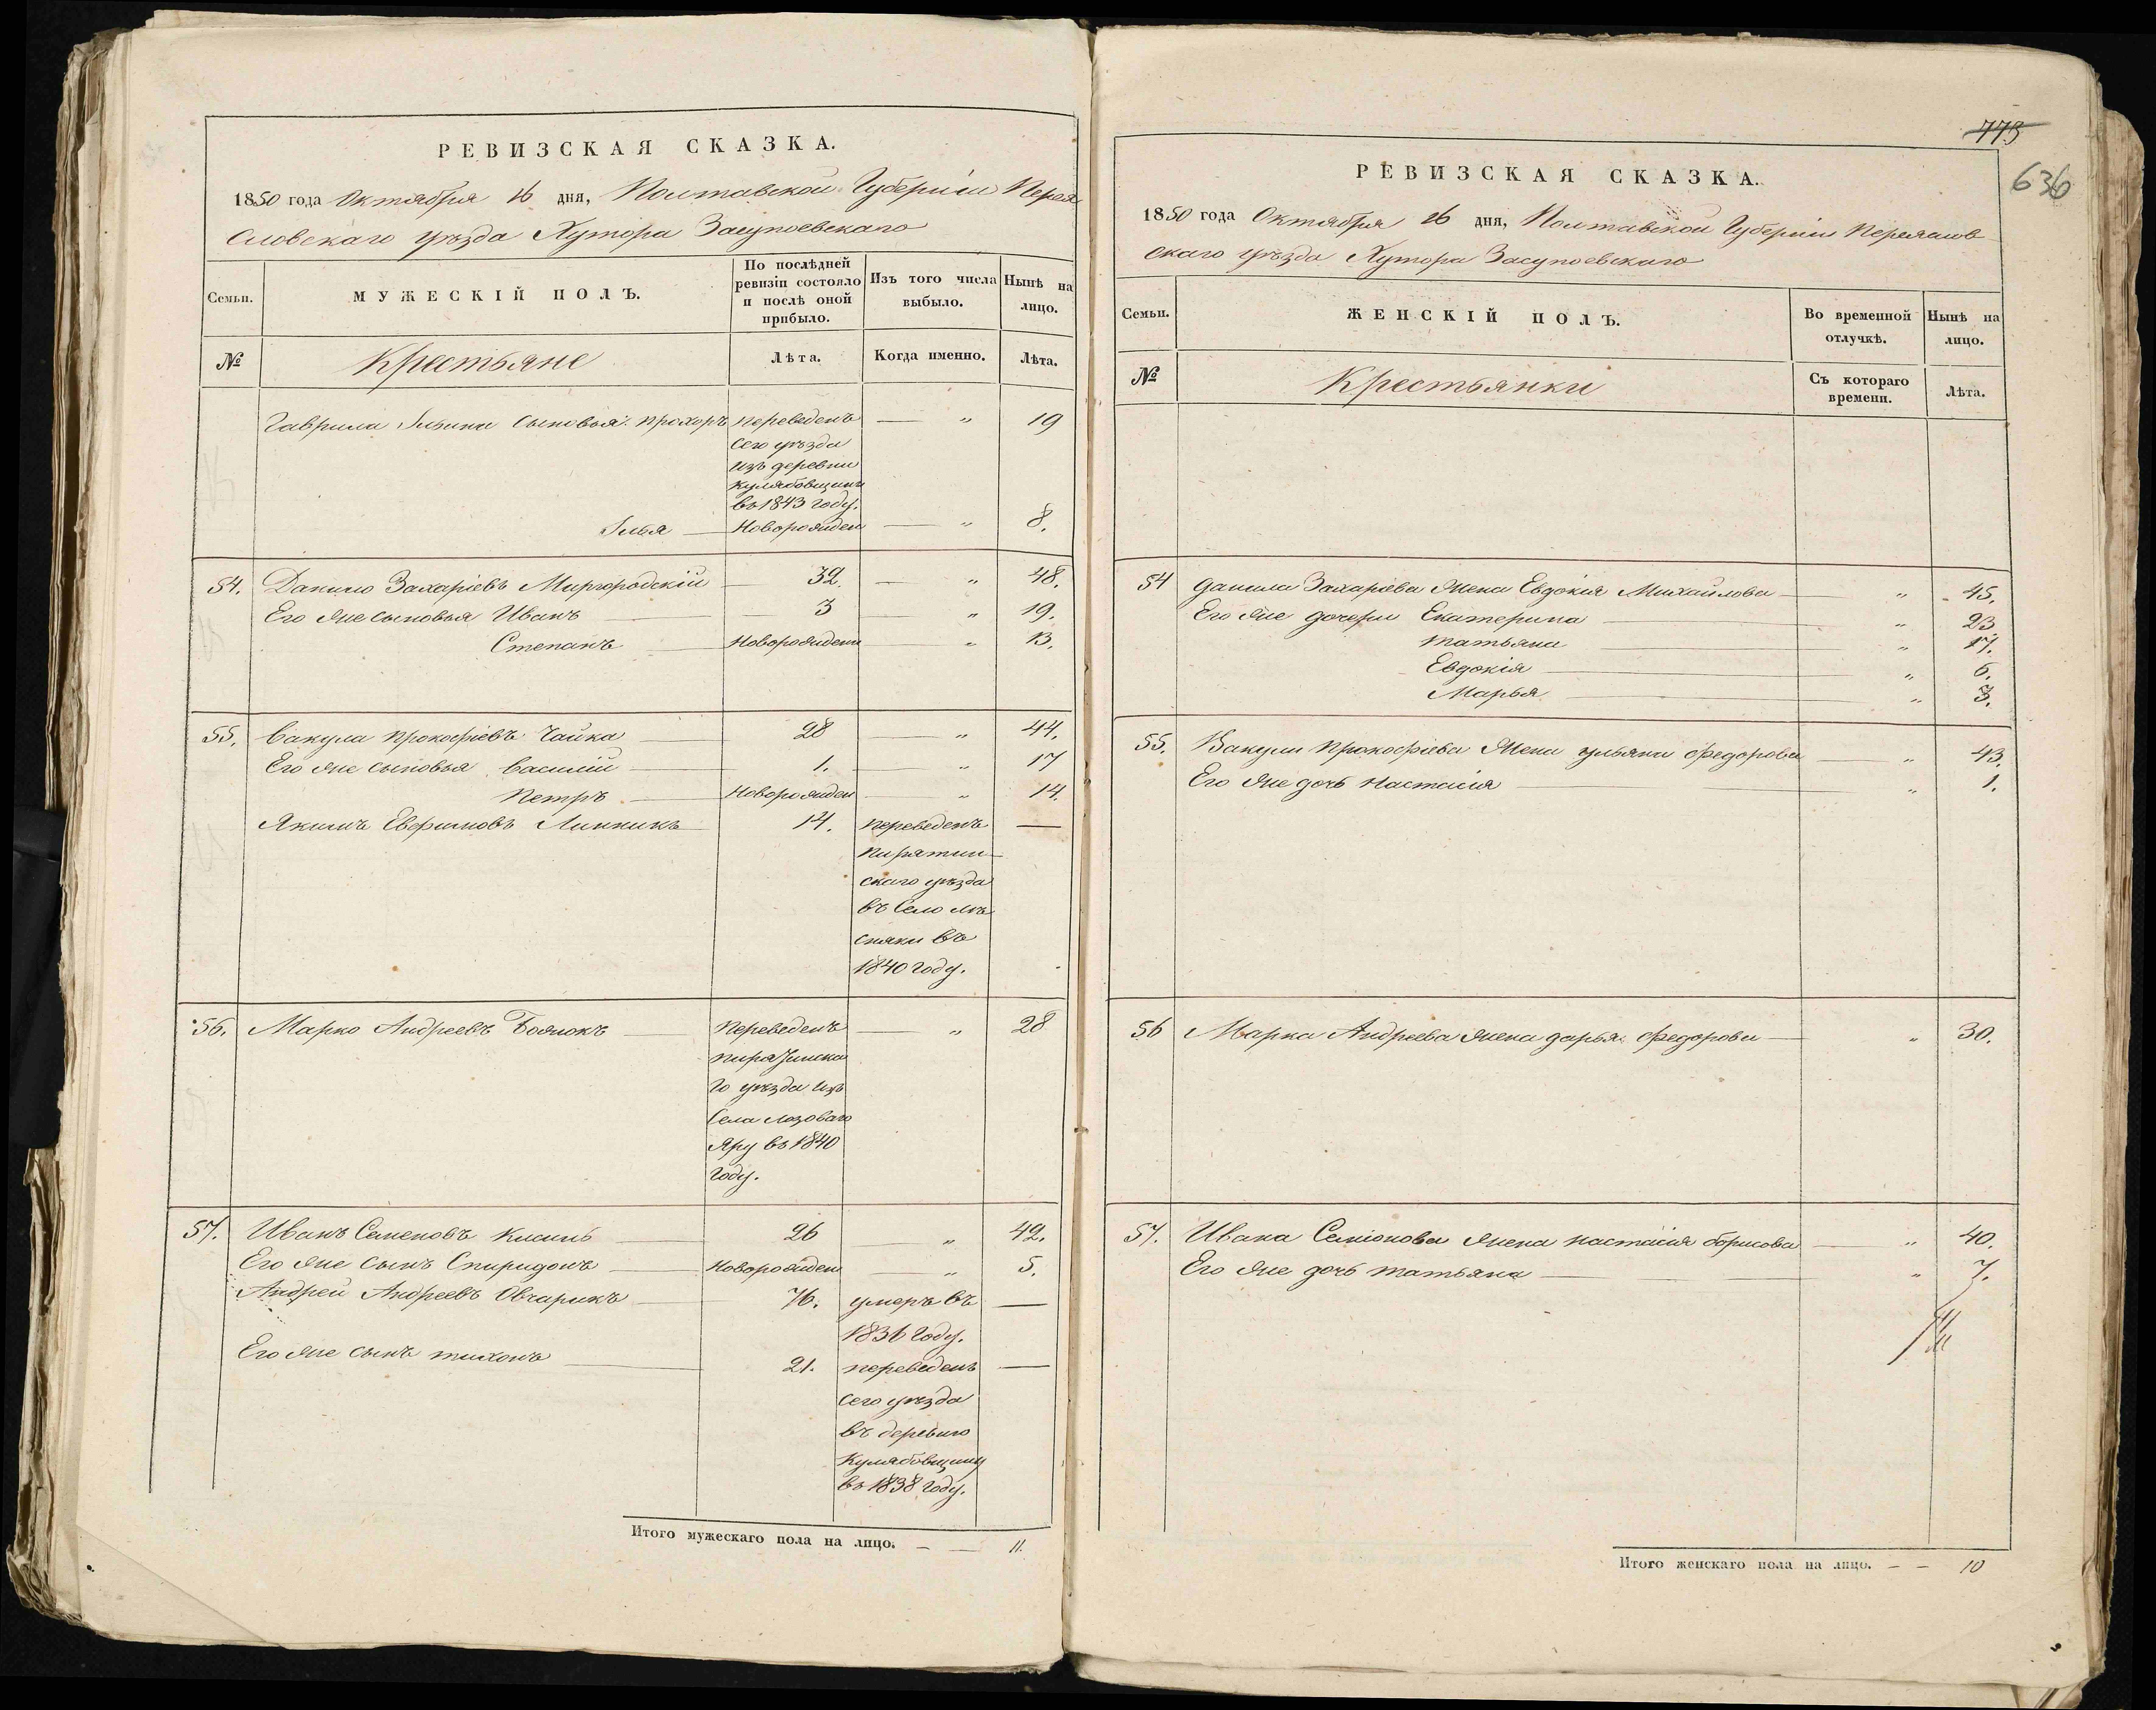 РЕВИЗСКАЯ СКАЗКА.
1850 года Октября 16 дня, Полтавской Губерніи Перея
словскаго уѣзда Хутора Засупоевскаго
Семьи.
МУЖЕСКІЙ ПОЛЪ.
По послѣдней ревизіи состояло и послѣ оной прибыло.
Изъ того числа выбыло.
Нынѣ на лицо.
№ Крестьяне Лѣта. Когда именно. Лѣта.
Гаврила Ильина сыновья: Прохоръ переведенъ — „ 19
сего уѣзда
изъ деревни
Кулябовщини
въ 1843 году.
Илья — Новорожден — „ 8.
54. Данило Захаріевъ Миргородскій — 32. — „ 48.
Его же сыновья Иванъ — 3 — „ 19.
Степанъ — Новорожденн — „ 13.
55. Вакула Прокофіевъ Чайка — 28 — „ 44.
Его же сыновья Василій — 1. — „ 17
Петръ — Новорожден — „ 14.
Якимъ Евфимовъ Линникъ — 14. переведенъ —
Пирятин-
скаго уѣзда
въ село
1840 году.
56. Марко Андреевъ — переведенъ — „ 28
Пирятинска
го уѣзда изъ
села Лозоваго
Яру въ 1840
году.
57. Иванъ Семеновъ — 26 „ 42.
Его же сынъ Спиридонъ — Новорожден — „ 5.
Андрей Андреевъ Овчарикъ — 76. умеръ въ —
1836 году.
Его же сынъ Тихонъ — 21. переведенъ —
сего уѣзда
въ деревню
Кулябовщину
въ 1838 году.
Итого мужескаго пола на лицо. — — 11.
775
636
РЕВИЗСКАЯ СКАЗКА.
1850 года Октября 16 дня, Полтавской Губерніи Переяслов
скаго уѣзда Хутора Засупоевскаго
Семьи.
ЖЕНСКІЙ ПОЛЪ.
Во временной отлучкѣ.
Нынѣ на лицо.
№ Крестьянки Съ котораго времени. Лѣта.
54 Данила Захаріева жена Евдокія Михайлова — „ 45.
Его же дочери Екатерина — „ 23
Татьяна — „ 17.
Евдокія — „ 6.
Марья — „ 3.
55. Вакули Прокофіева жена Ульяна Федорова — „ 43.
Его же дочь Настасія — „ 1.
56 Марка Андреева жена Дарья Федорова — „ 30.
57. Ивана Семіонова жена Настасія Борисова — „ 40.
Его же дочь Татьяна — „ 7.
Итого женскаго пола на лицо. — — 10